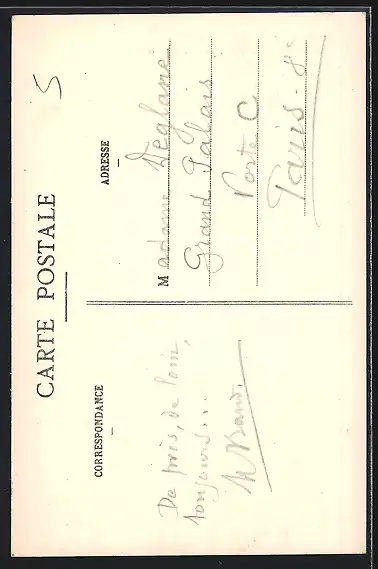 5
CARTE POSTALE
CORRESPONDANCE
De près, de loin,
toujours...
ADRESSE
Madame Déglane
Grand Palais
Porte C
Paris. 8e